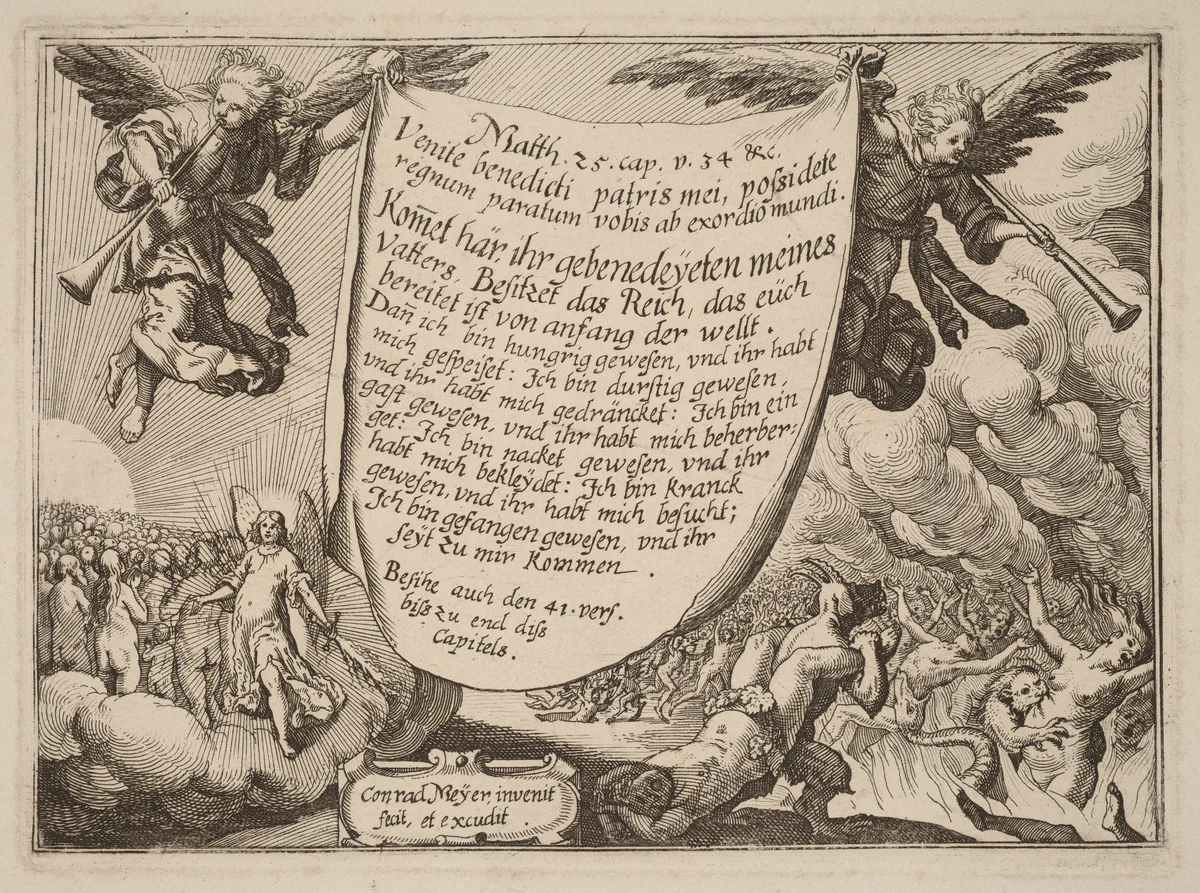 Matth. 25. cap. v. 34 &c.
Venite benedicti patris mei, poſsidete
regnum paratum vobis ab exordio mundi.
Kom̄et här, ihr gebenedeÿeten meines
Vatters, Beſitzet das Reich, das eüch
bereitet iſt von anfang der wellt.
Dan̄ ich bin hungrig geweſen, vnd ihr habt
mich geſpeiſet: Ich bin durſtig geweſen,
vnd ihr habt mich gedräncket: Ich bin ein
gaſt geweſen, vnd ihr habt mich beherber:
get: Ich bin nacket geweſen, vnd ihr
habt mich bekleÿdet: Ich bin Kranck
geweſen, vnd ihr habt mich beſucht;
Ich bin gefangen geweſen, vnd ihr
ſeÿt zu mir Kommen.
Beſihe auch den 41. verſ.
biß zu end diß
Capitels.
Conrad Meÿer, invenit
fecit, et excudit.